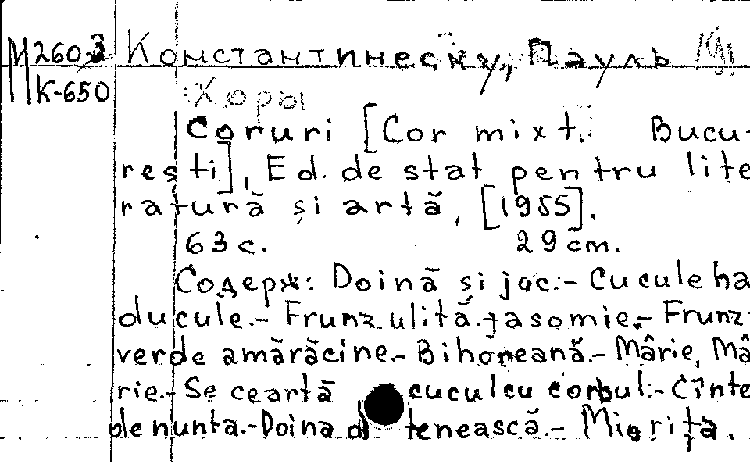 М260.3 Константинеску, Пауль
К-650
Хоры
Coruri [Cor mixt. Bucu-
rești], Ed. de stat pentru lite
ratură și artă, [1955].
63 с. 29 cm.
Содерж: Doină și joc.- Cucule ha
ducule.- Frunzuliță iasomie.- Frunz
verde amărăcine.- Bihoreană.- Mărie, Mă
rie.- Se ceartă cucul cu corbul.- Cînte
de nunta.- Doina tenească.- Miorița.